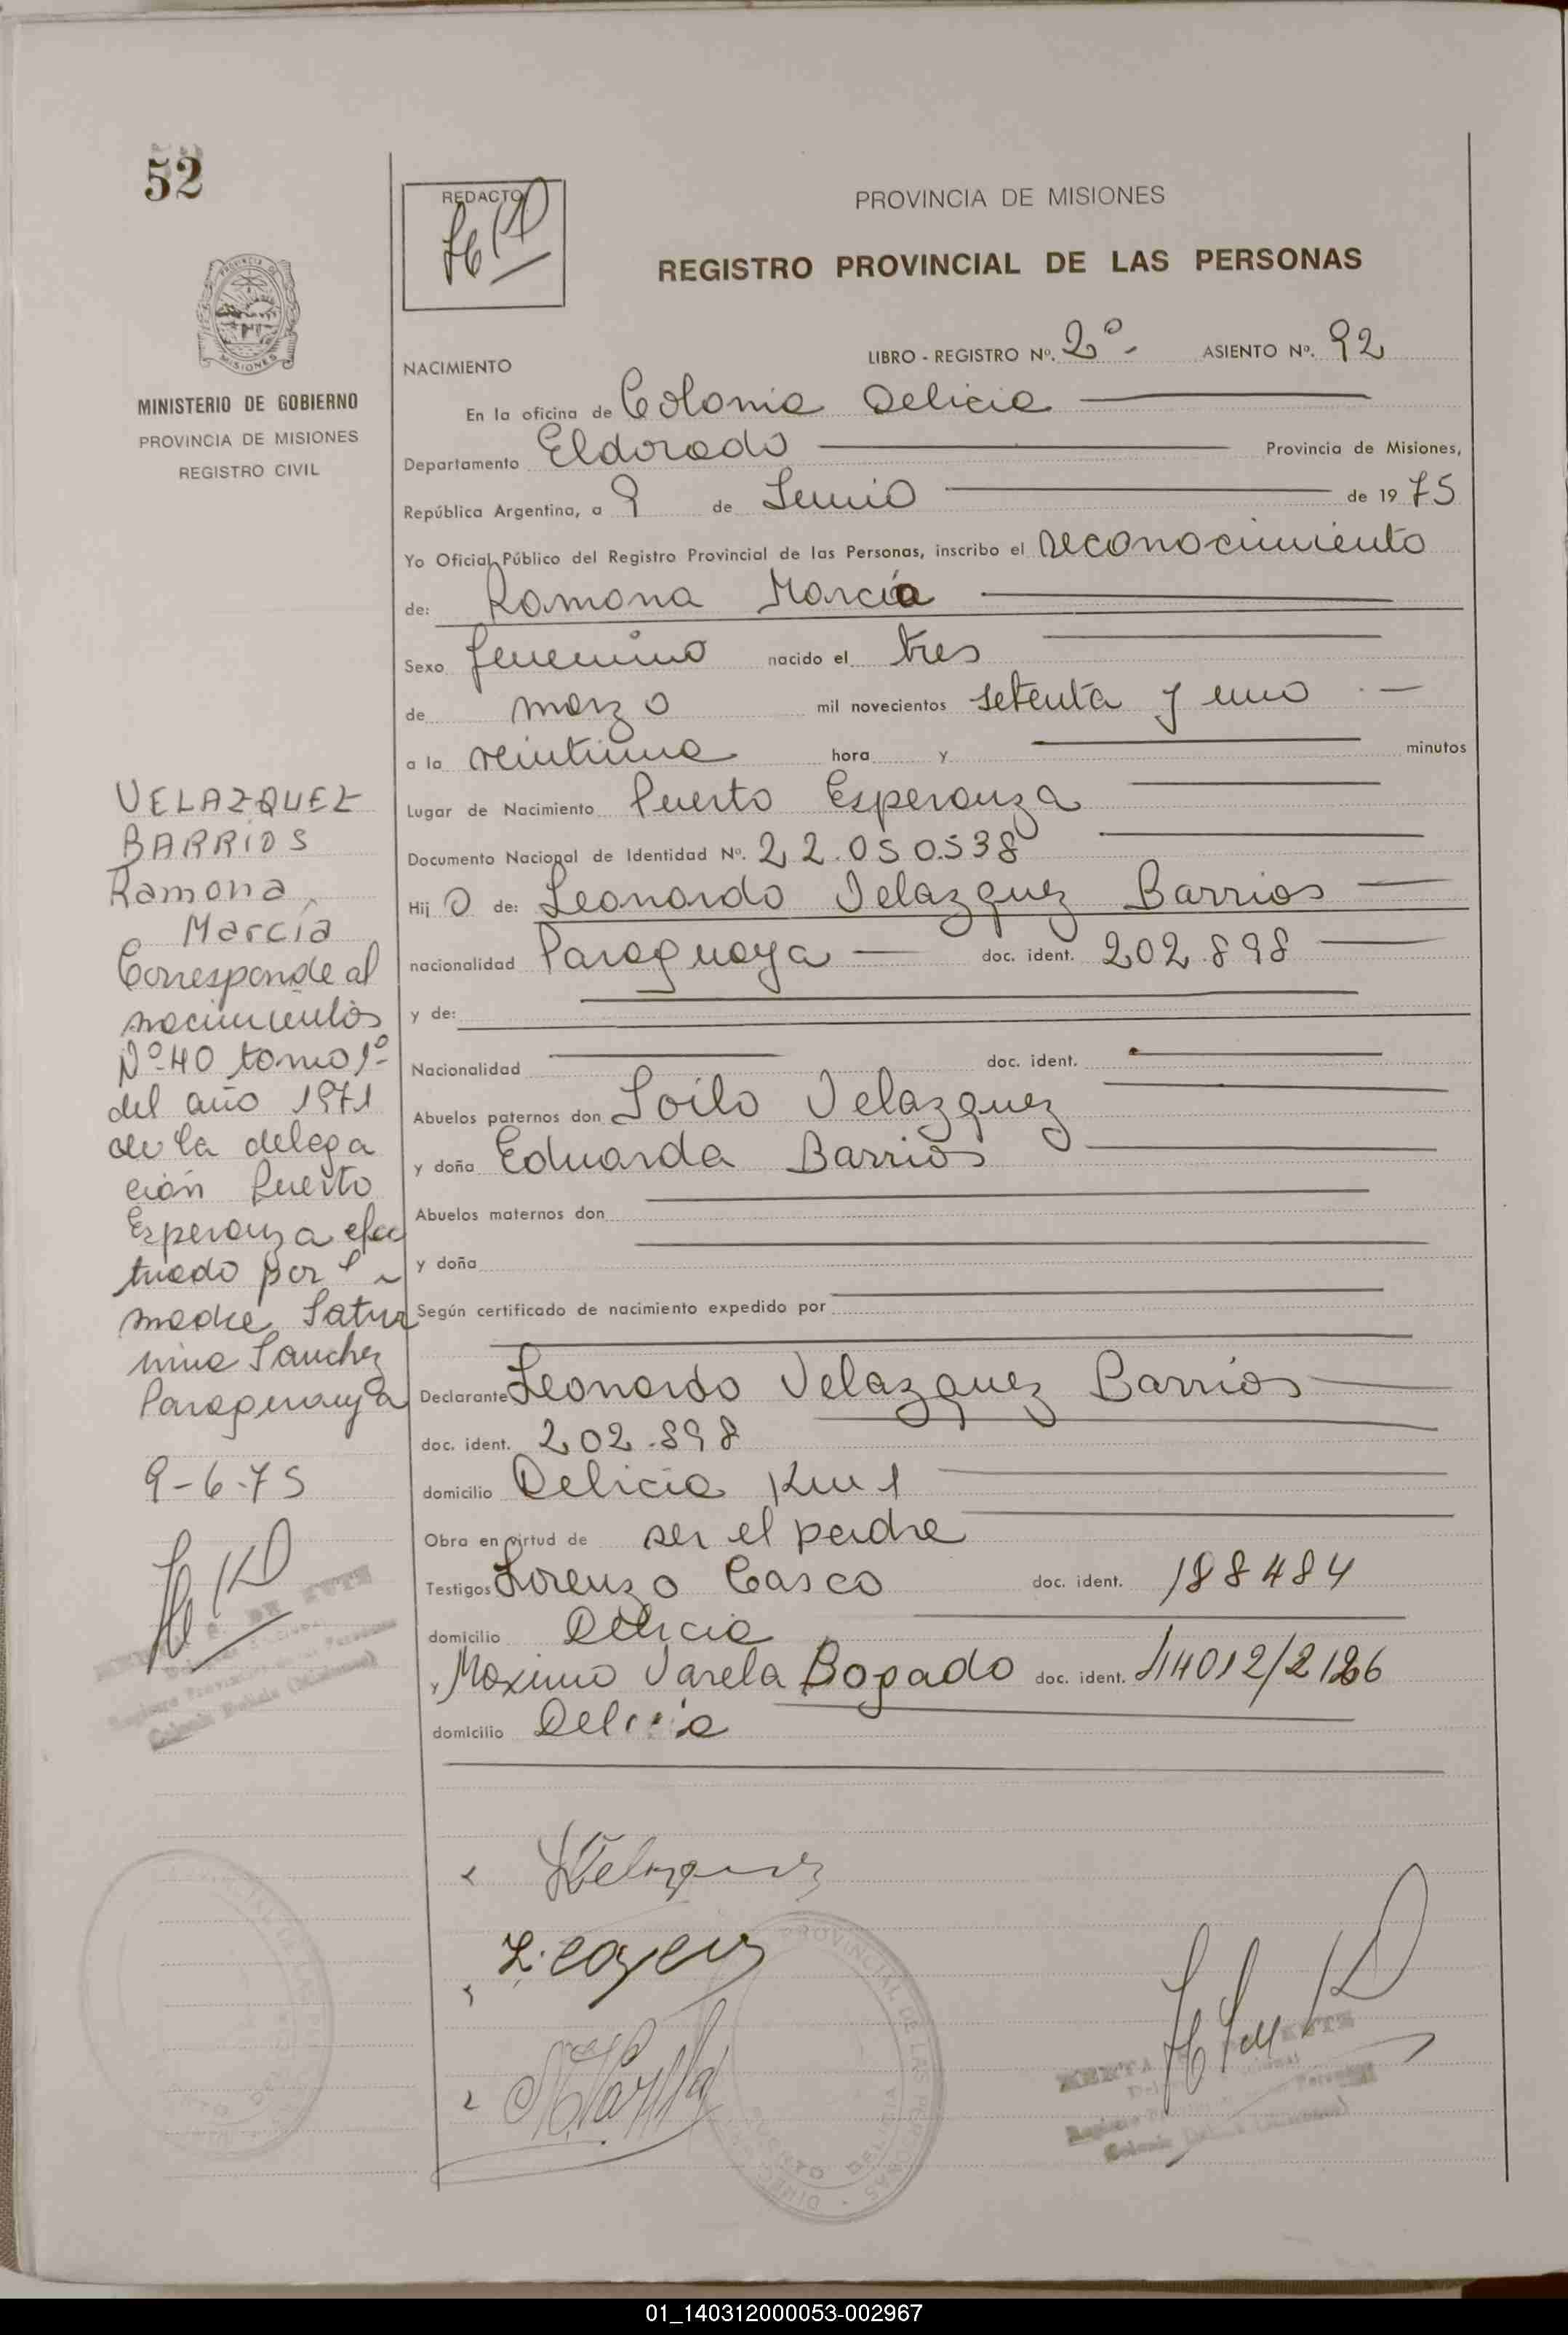 52
REDACTO
PROVINCIA DE MISIONES
REGISTRO PROVINCIAL DE LAS PERSONAS
MISIONES
MINISTERIO DE GOBIERNO
PROVINCIA DE MISIONES
REGISTRO CIVIL
NACIMIENTO
LIBRO - REGISTRO Nº. 2º- ASIENTO Nº. 92
En la oficina de Colonia Delicia
Departamento Eldorado Provincia de Misiones,
República Argentina, a 9 de Junio de 1975
Yo Oficial Público del Registro Provincial de las Personas, inscribo el reconocimiento
de: Ramona Marcia
Sexo femenino nacido el tres
de marzo mil novecientos setenta y uno
a la veintiuna hora y minutos
Lugar de Nacimiento Puerto Esperanza
Documento Nacional de Identidad Nº. 22.050.538
Hij a de: Leonardo Velazquez Barrios
nacionalidad Paraguaya doc. ident. 202.898
y de:
Nacionalidad doc. ident.
Abuelos paternos don Soilo Velazquez
y doña Eduarda Barrios
Abuelos maternos don
y doña
Según certificado de nacimiento expedido por
Declarante Leonardo Velazquez Barrios
doc. ident. 202.898
domicilio Delicia Km 1
Obra en virtud de ser el padre
Testigos Lorenzo Casco doc. ident. 188484
domicilio Delicia
y Maximo Varela Bogado doc. ident.
domicilio Delicia
VELAZQUEZ
BARRIOS
Ramona
Marcía
Corresponde al
nacimientos
Nº 40 tomo 1º
del año 1971
de la delega
ción Puerto
Esperanza efec
tuado por l
madre Satur
nina Sanchez
Paraguaya
9-6-75